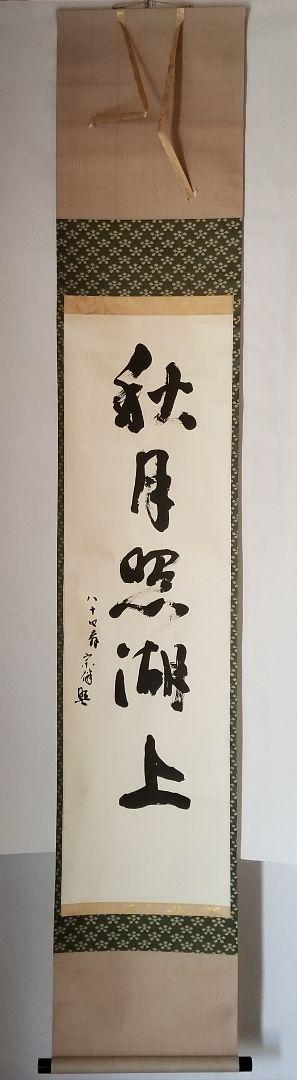 秋月照湖上
八十四翁 宗